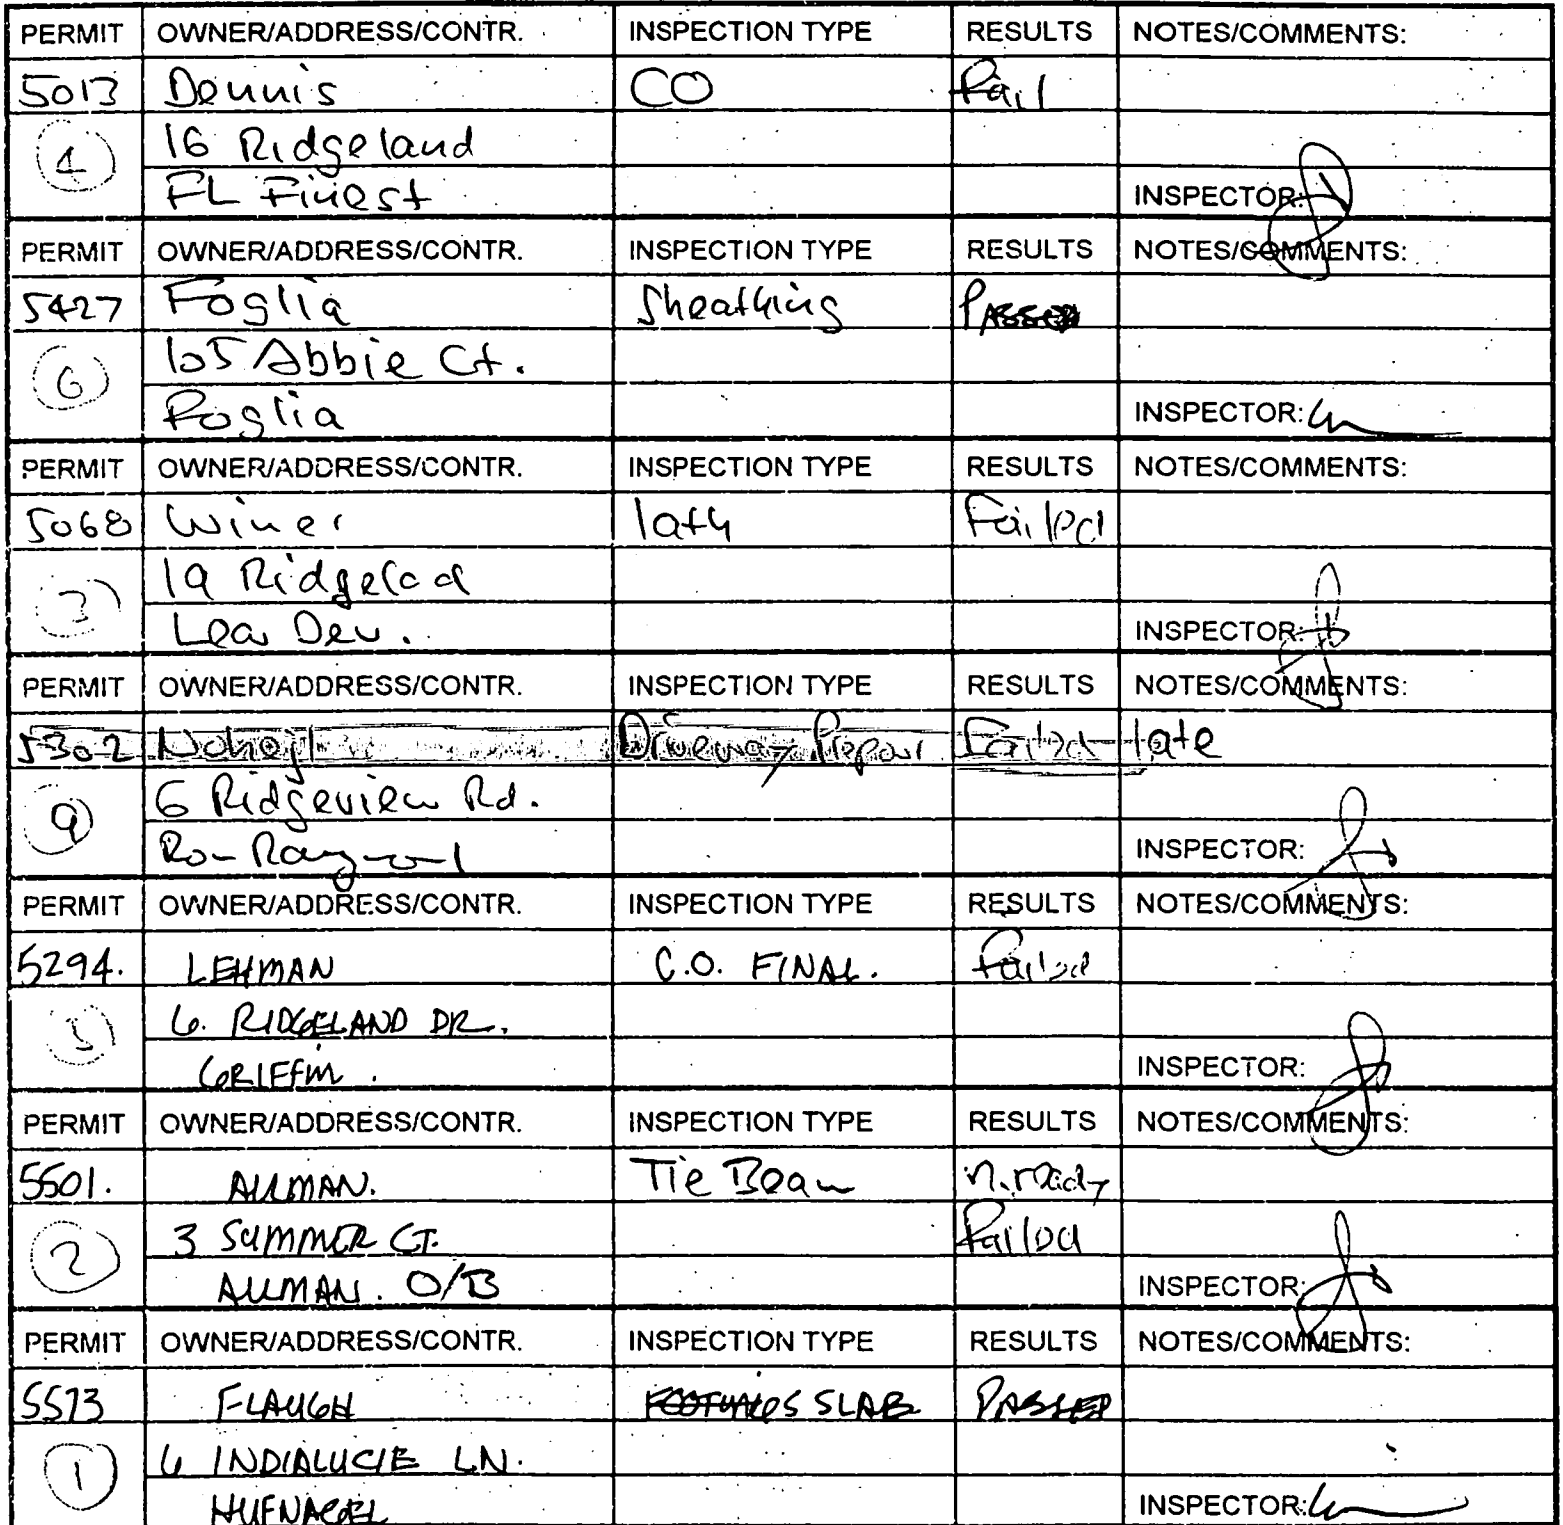 PERMIT OWNER/ADDRESS/CONTR. INSPECTION TYPE RESULTS NOTES/COMMENTS:
5013 Dennis CO Fail
4 16 Ridgeland
FL Finest INSPECTOR:
PERMIT OWNER/ADDRESS/CONTR. INSPECTION TYPE RESULTS NOTES/COMMENTS:
5427 Foglia Sheathing PASSED
6 105 Abbie Ct.
Foglia INSPECTOR:
PERMIT OWNER/ADDRESS/CONTR. INSPECTION TYPE RESULTS NOTES/COMMENTS:
5068 Winer lath Failed
3 19 Ridgelad
Lear Dev. INSPECTOR:
PERMIT OWNER/ADDRESS/CONTR. INSPECTION TYPE RESULTS NOTES/COMMENTS:
5302 Driveway Repair Failed late
9 6 Ridgeview Rd.
Ron Raymond INSPECTOR:
PERMIT OWNER/ADDRESS/CONTR. INSPECTION TYPE RESULTS NOTES/COMMENTS:
5294. LEHMAN C.O. FINAL. Failed
6. RIDGELAND DR.
GRIFFIN. INSPECTOR:
PERMIT OWNER/ADDRESS/CONTR. INSPECTION TYPE RESULTS NOTES/COMMENTS:
5501. ALLMAN. Tie Beam n. ready
2 3 SUMMER CT. Failed
ALLMAN. O/B INSPECTOR:
PERMIT OWNER/ADDRESS/CONTR. INSPECTION TYPE RESULTS NOTES/COMMENTS:
5573 FLAUGH SLAB PASSED
1 6 INDIALUCIE LN.
HUFNAGEL INSPECTOR: